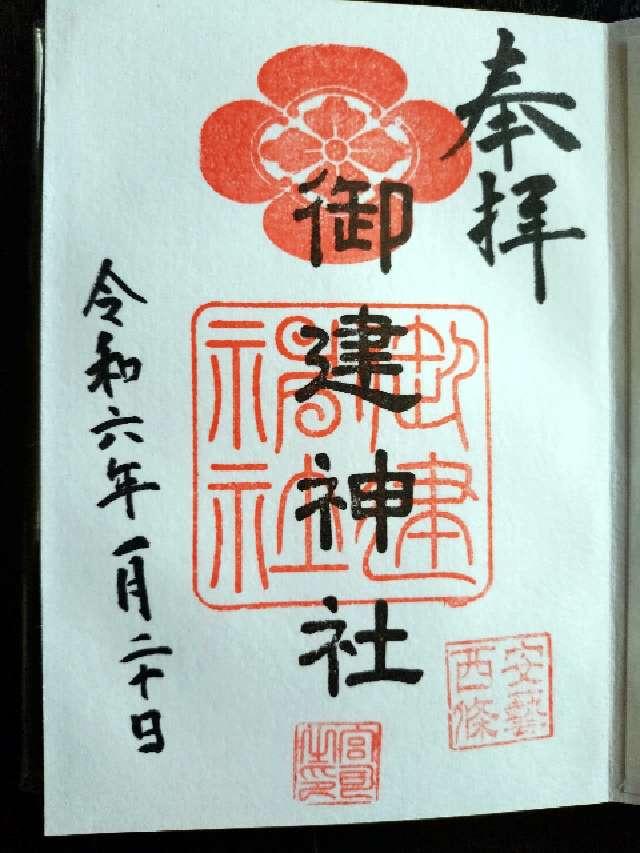 奉拝
御建神社
御建神社
安藝西條
宮司之印
令和六年一月二十日